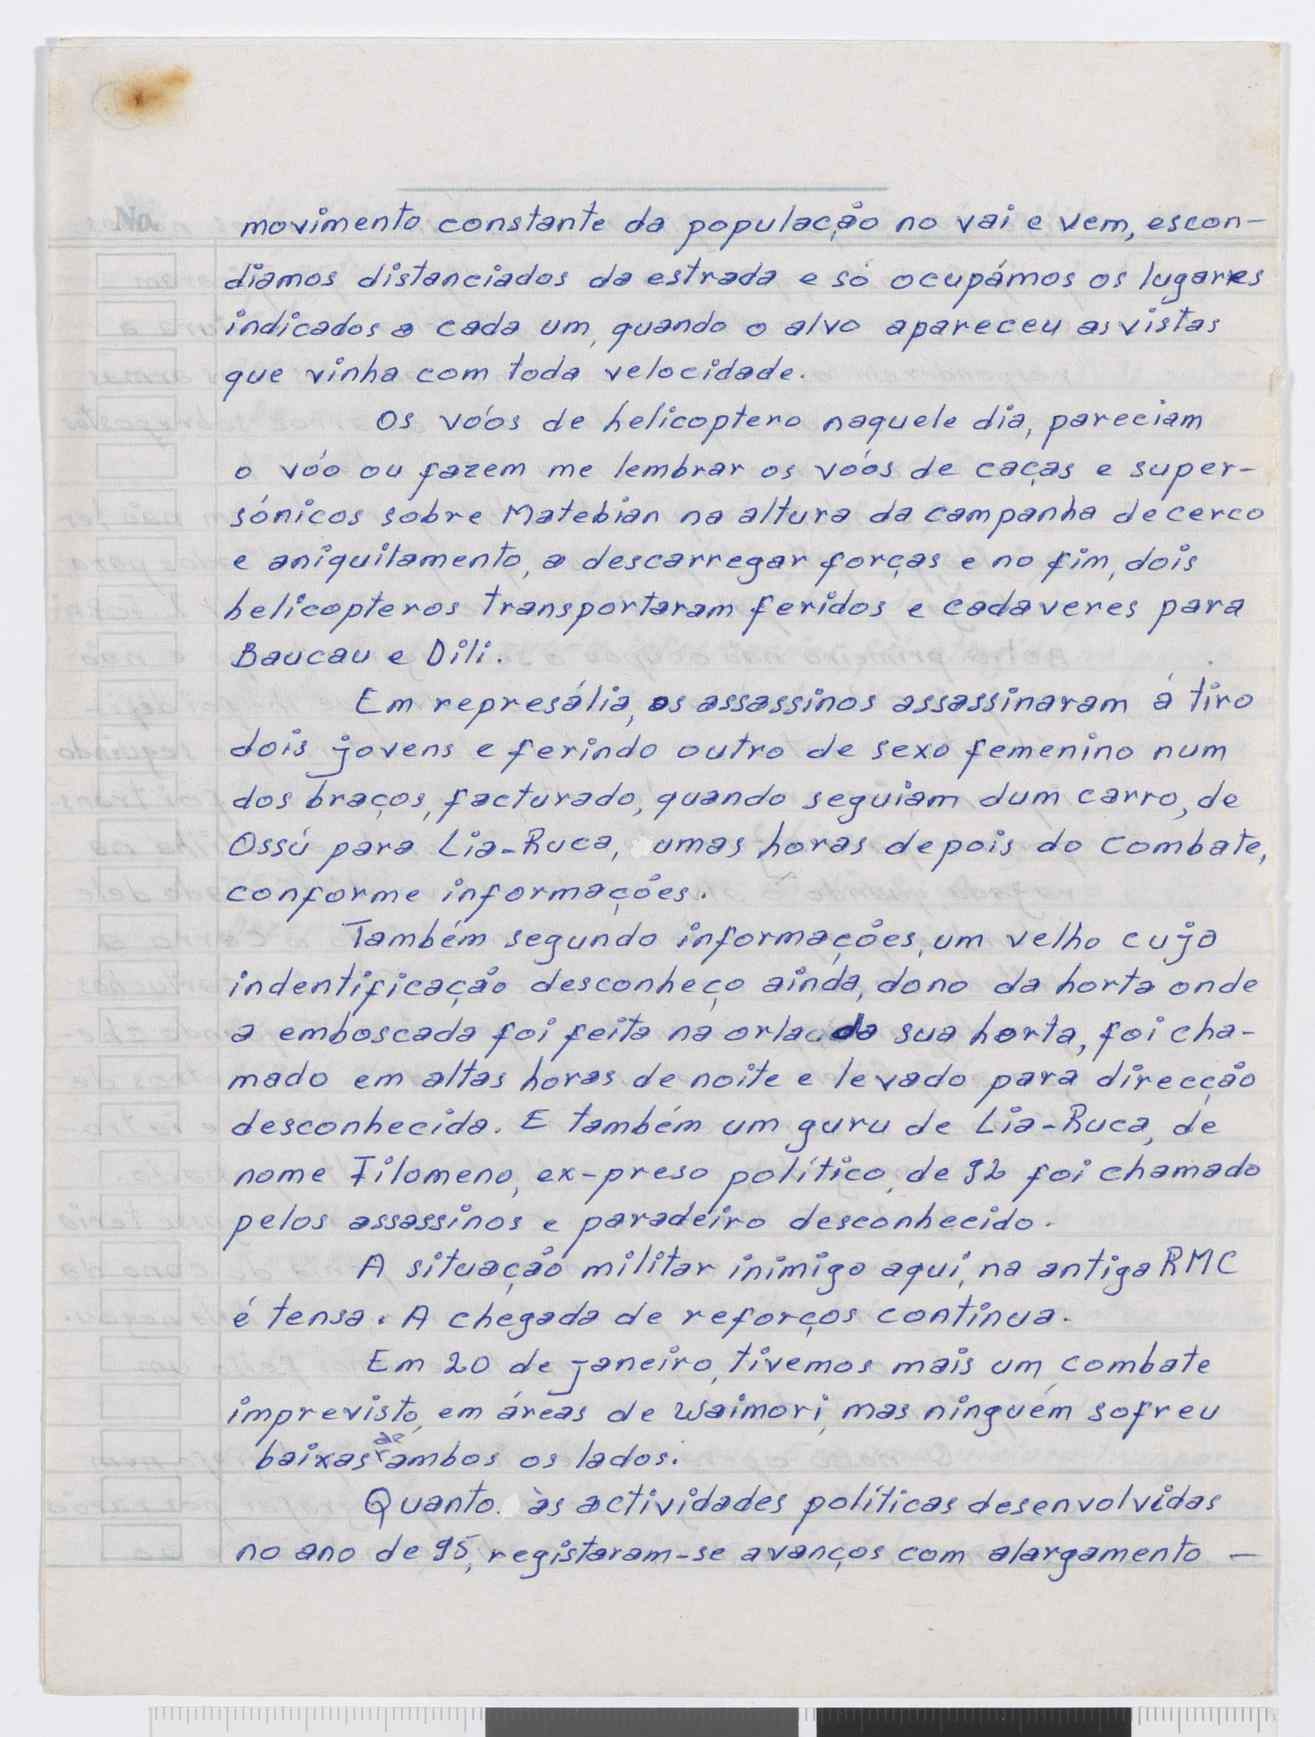 No.
movimento constante da população no vai e vem, escon-
díamos distanciados da estrada e só ocupámos os lugares
indicados a cada um, quando o alvo apareceu as vistas
que vinha com toda velocidade.
Os vóos de helicoptero naquele dia, pareciam
o vóo ou fazem me lembrar os vóos de caças e super-
sónicos sobre Matebian na altura da campanha de cerco
e aniquilamento, a descarregar forças e no fim, dois
helicopteros transportaram feridos e cadaveres para
Baucau e Dili.
Em represália, os assassinos assassinaram á tiro
dois jovens e ferindo outro de sexo femenino num
dos braços, facturado, quando seguiam dum carro, de
Ossú para Lia-Ruca, umas horas depois do combate,
conforme informações.
Também segundo informações, um velho cuja
indentificação desconheço ainda, dono da horta onde
a emboscada foi feita na orla da sua horta, foi cha-
mado em altas horas de noite e levado para direcção
desconhecida. E também um guru de Lia-Ruca, de
nome Filomeno, ex-preso político, de 92 foi chamado
pelos assassinos e paradeiro desconhecido.
A situação militar inimigo aqui, na antiga RMC
é tensa. A chegada de reforços continua.
Em 20 de janeiro, tivemos mais um combate
imprevisto, em áreas de Waimori, mas ninguém sofreu
baixas de ambos os lados.
Quanto às actividades políticas desenvolvidas
no ano de 95, registaram-se avanços com alargamento -